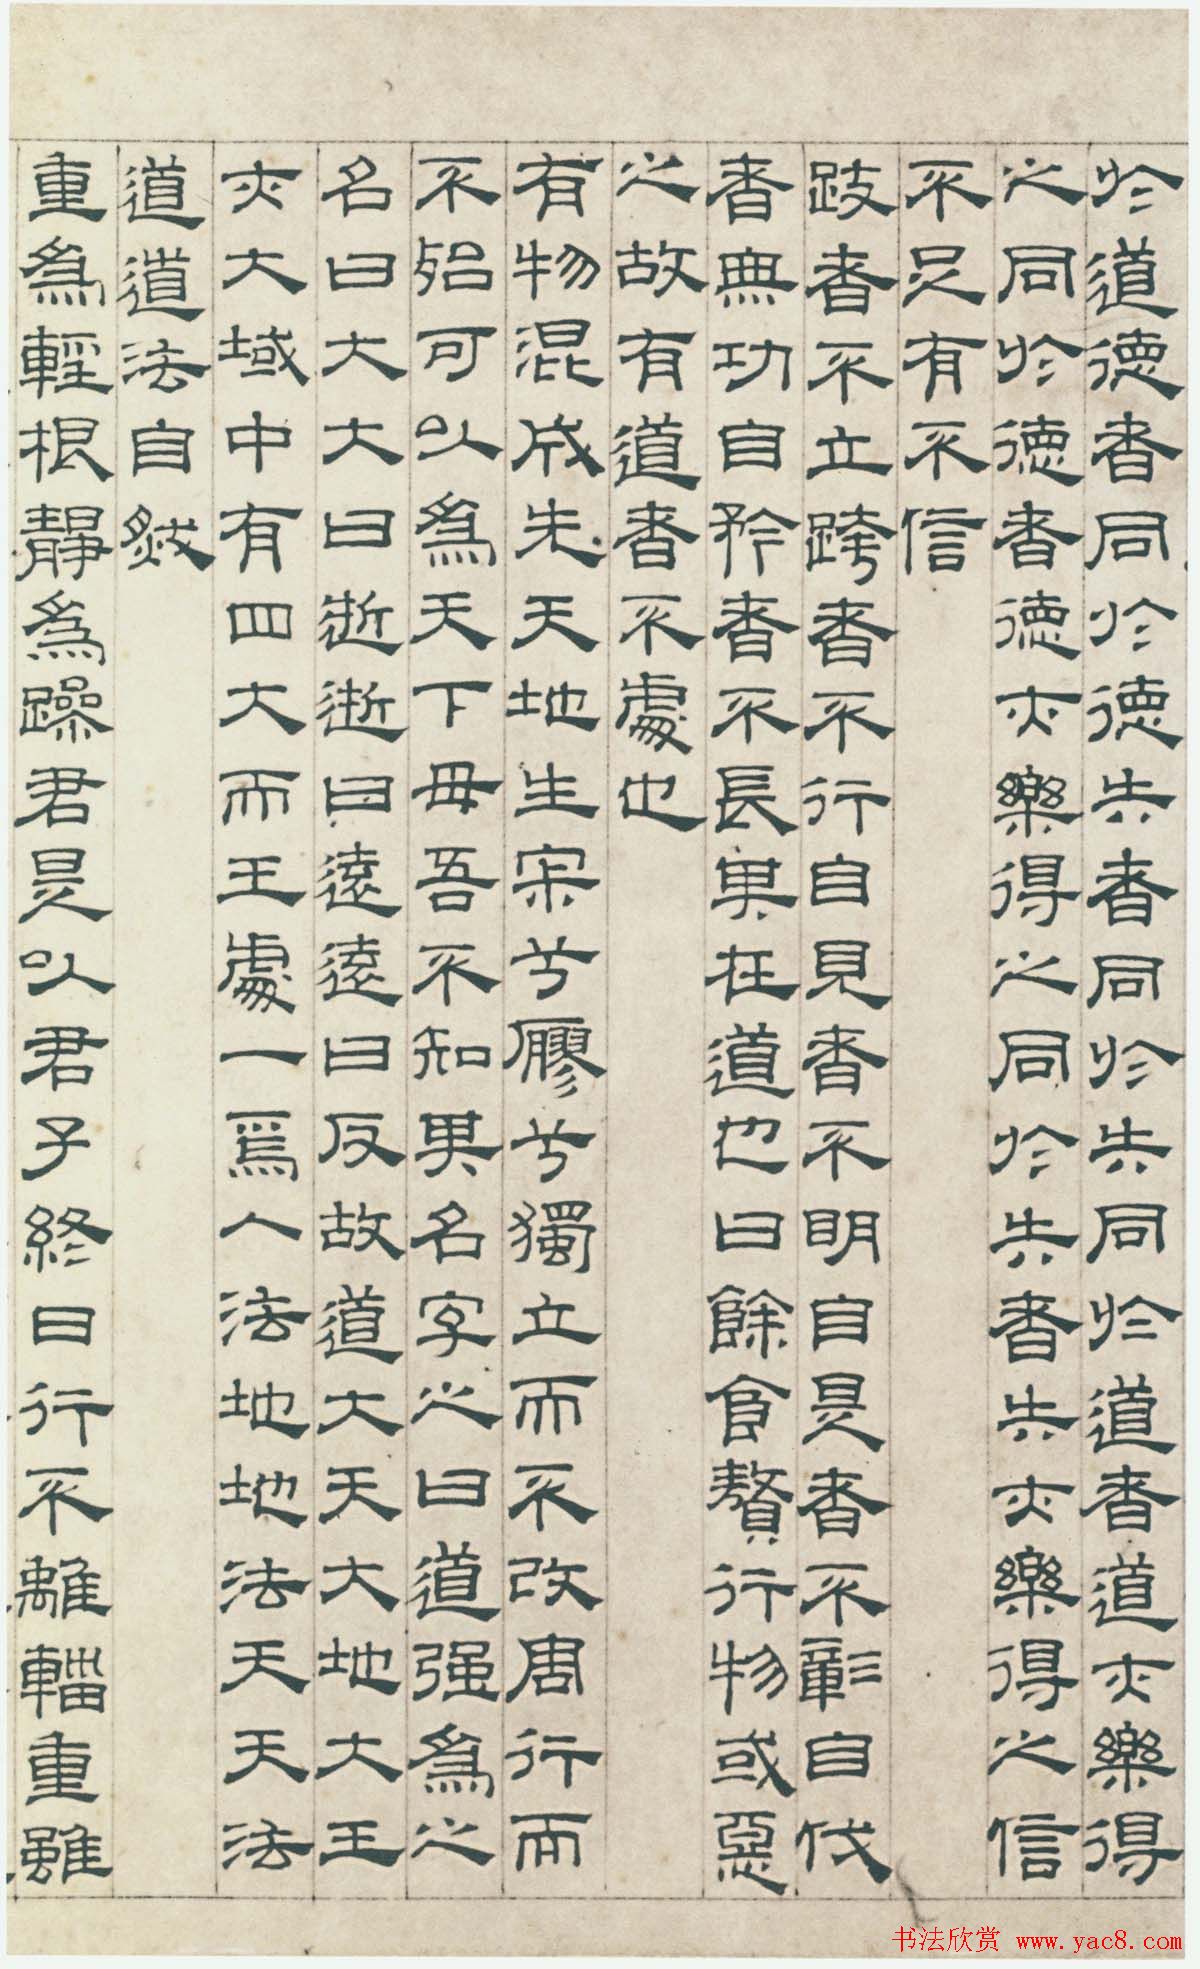 於道德者同於德失者同於失同於道者道亦樂得
之同於德者德亦樂得之同於失者失亦樂得之信
不足有不信
跂者不立跨者不行自見者不明自是者不彰自伐
者無功自矜者不長其在道也曰餘食贅行物或惡
之故有道者不處也
有物混成先天地生寂兮廖兮獨立而不改周行而
不殆可以為天下母吾不知其名字之曰道強為之
名曰大大曰逝逝曰遠遠曰反故道大天大地大王
亦大域中有四大而王處一焉人法地地法天天法
道道法自然
重為輕根靜為躁君是以君子終日行不離輜重雖
书法欣赏 www.yac8.com